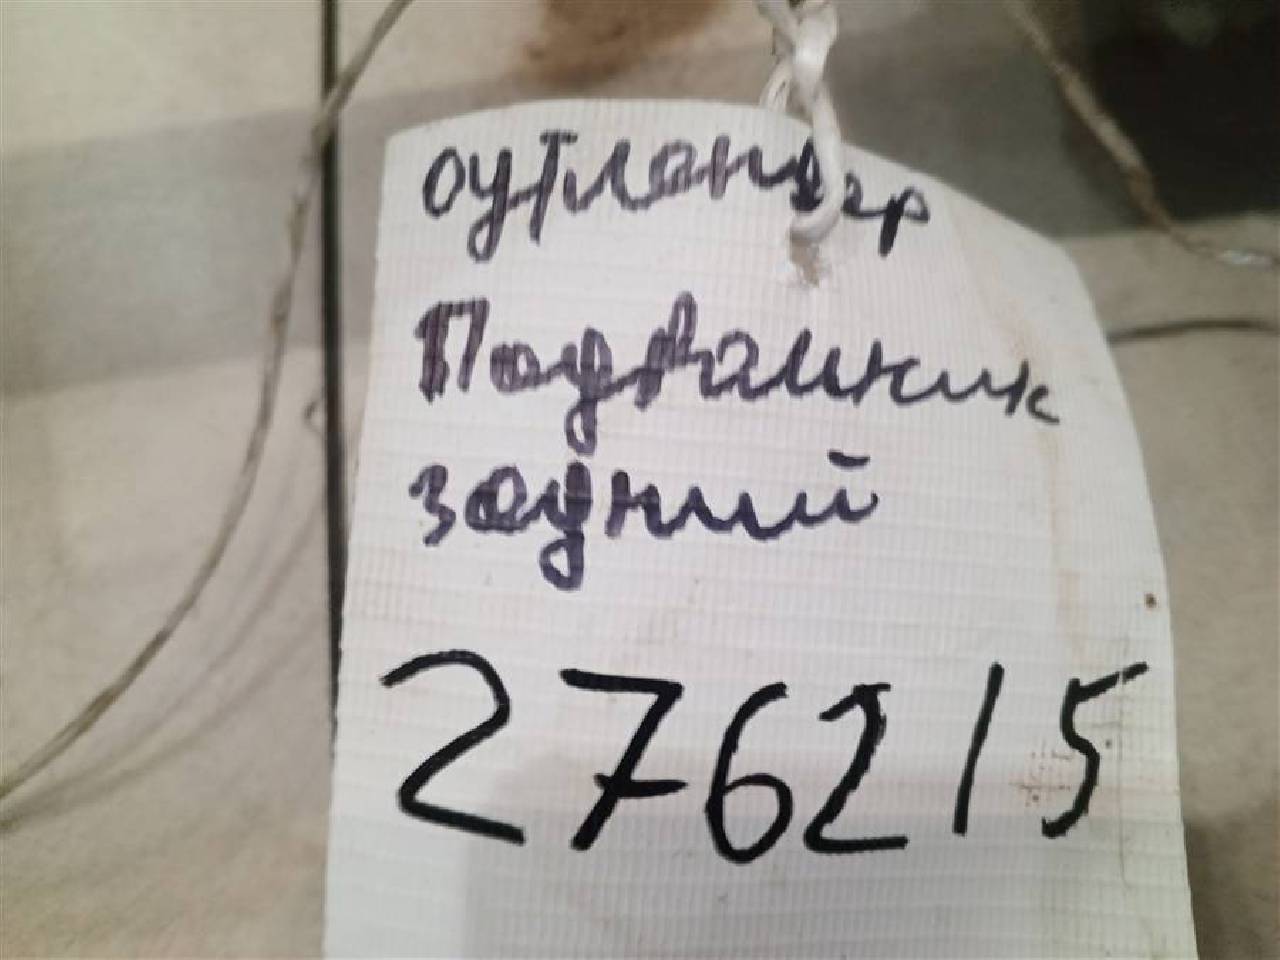 оутландер
Подрамник
задний
276215